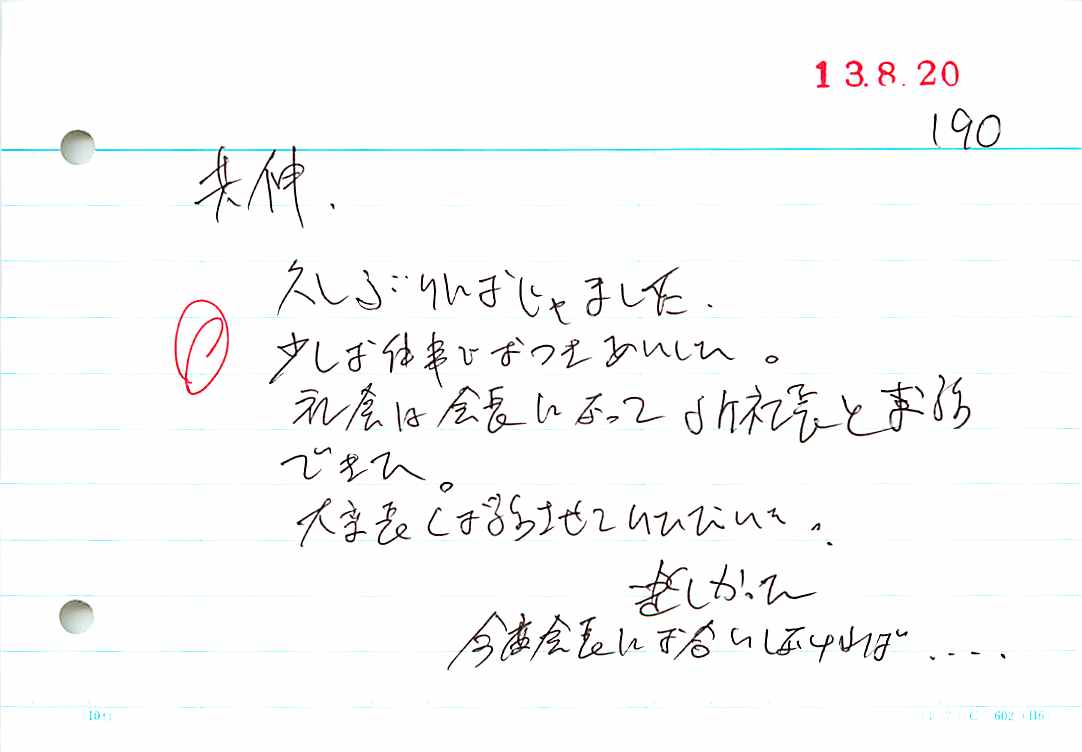 13.8.20
190
共伸.
久しぶりにおじゃました.
少しお仕事でおつきあいした。
社会は会長になって 小社長と お話
できた。
大変長くお話させていただいた.
楽しかった
今度会長にお会いしなければ.....
602